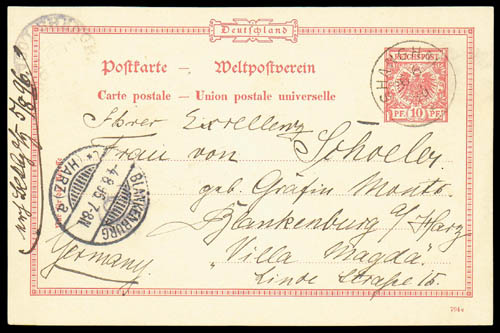 Deutschland
Postkarte — Weltpostverein
Carte postale — Union postale universelle
REICHSPOST
PF. 10 PF.
SHANGHAI
Ihrer Excellenz
Frau von Schoeler
geb. Gräfin Monts
Blankenburg a/Harz
"Villa Magda"
Linde Straße 15.
Germany
BLANKENBURG
4.8.96. 7-8N.
* (HARZ) a
1896